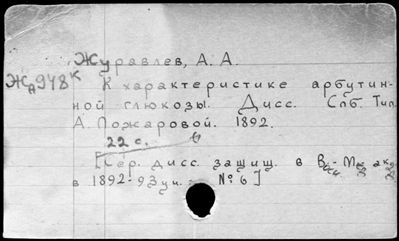 Журавлев, А. А.
ЖД948К К характеристике арбутин-
ной глюкозы. Дисс. Спб. Тип.
А. Пожаровой. 1892.
22 с.
[Сер. дисс. защищ. в В.-М. ак.
в 1892-93 уч. № 6]